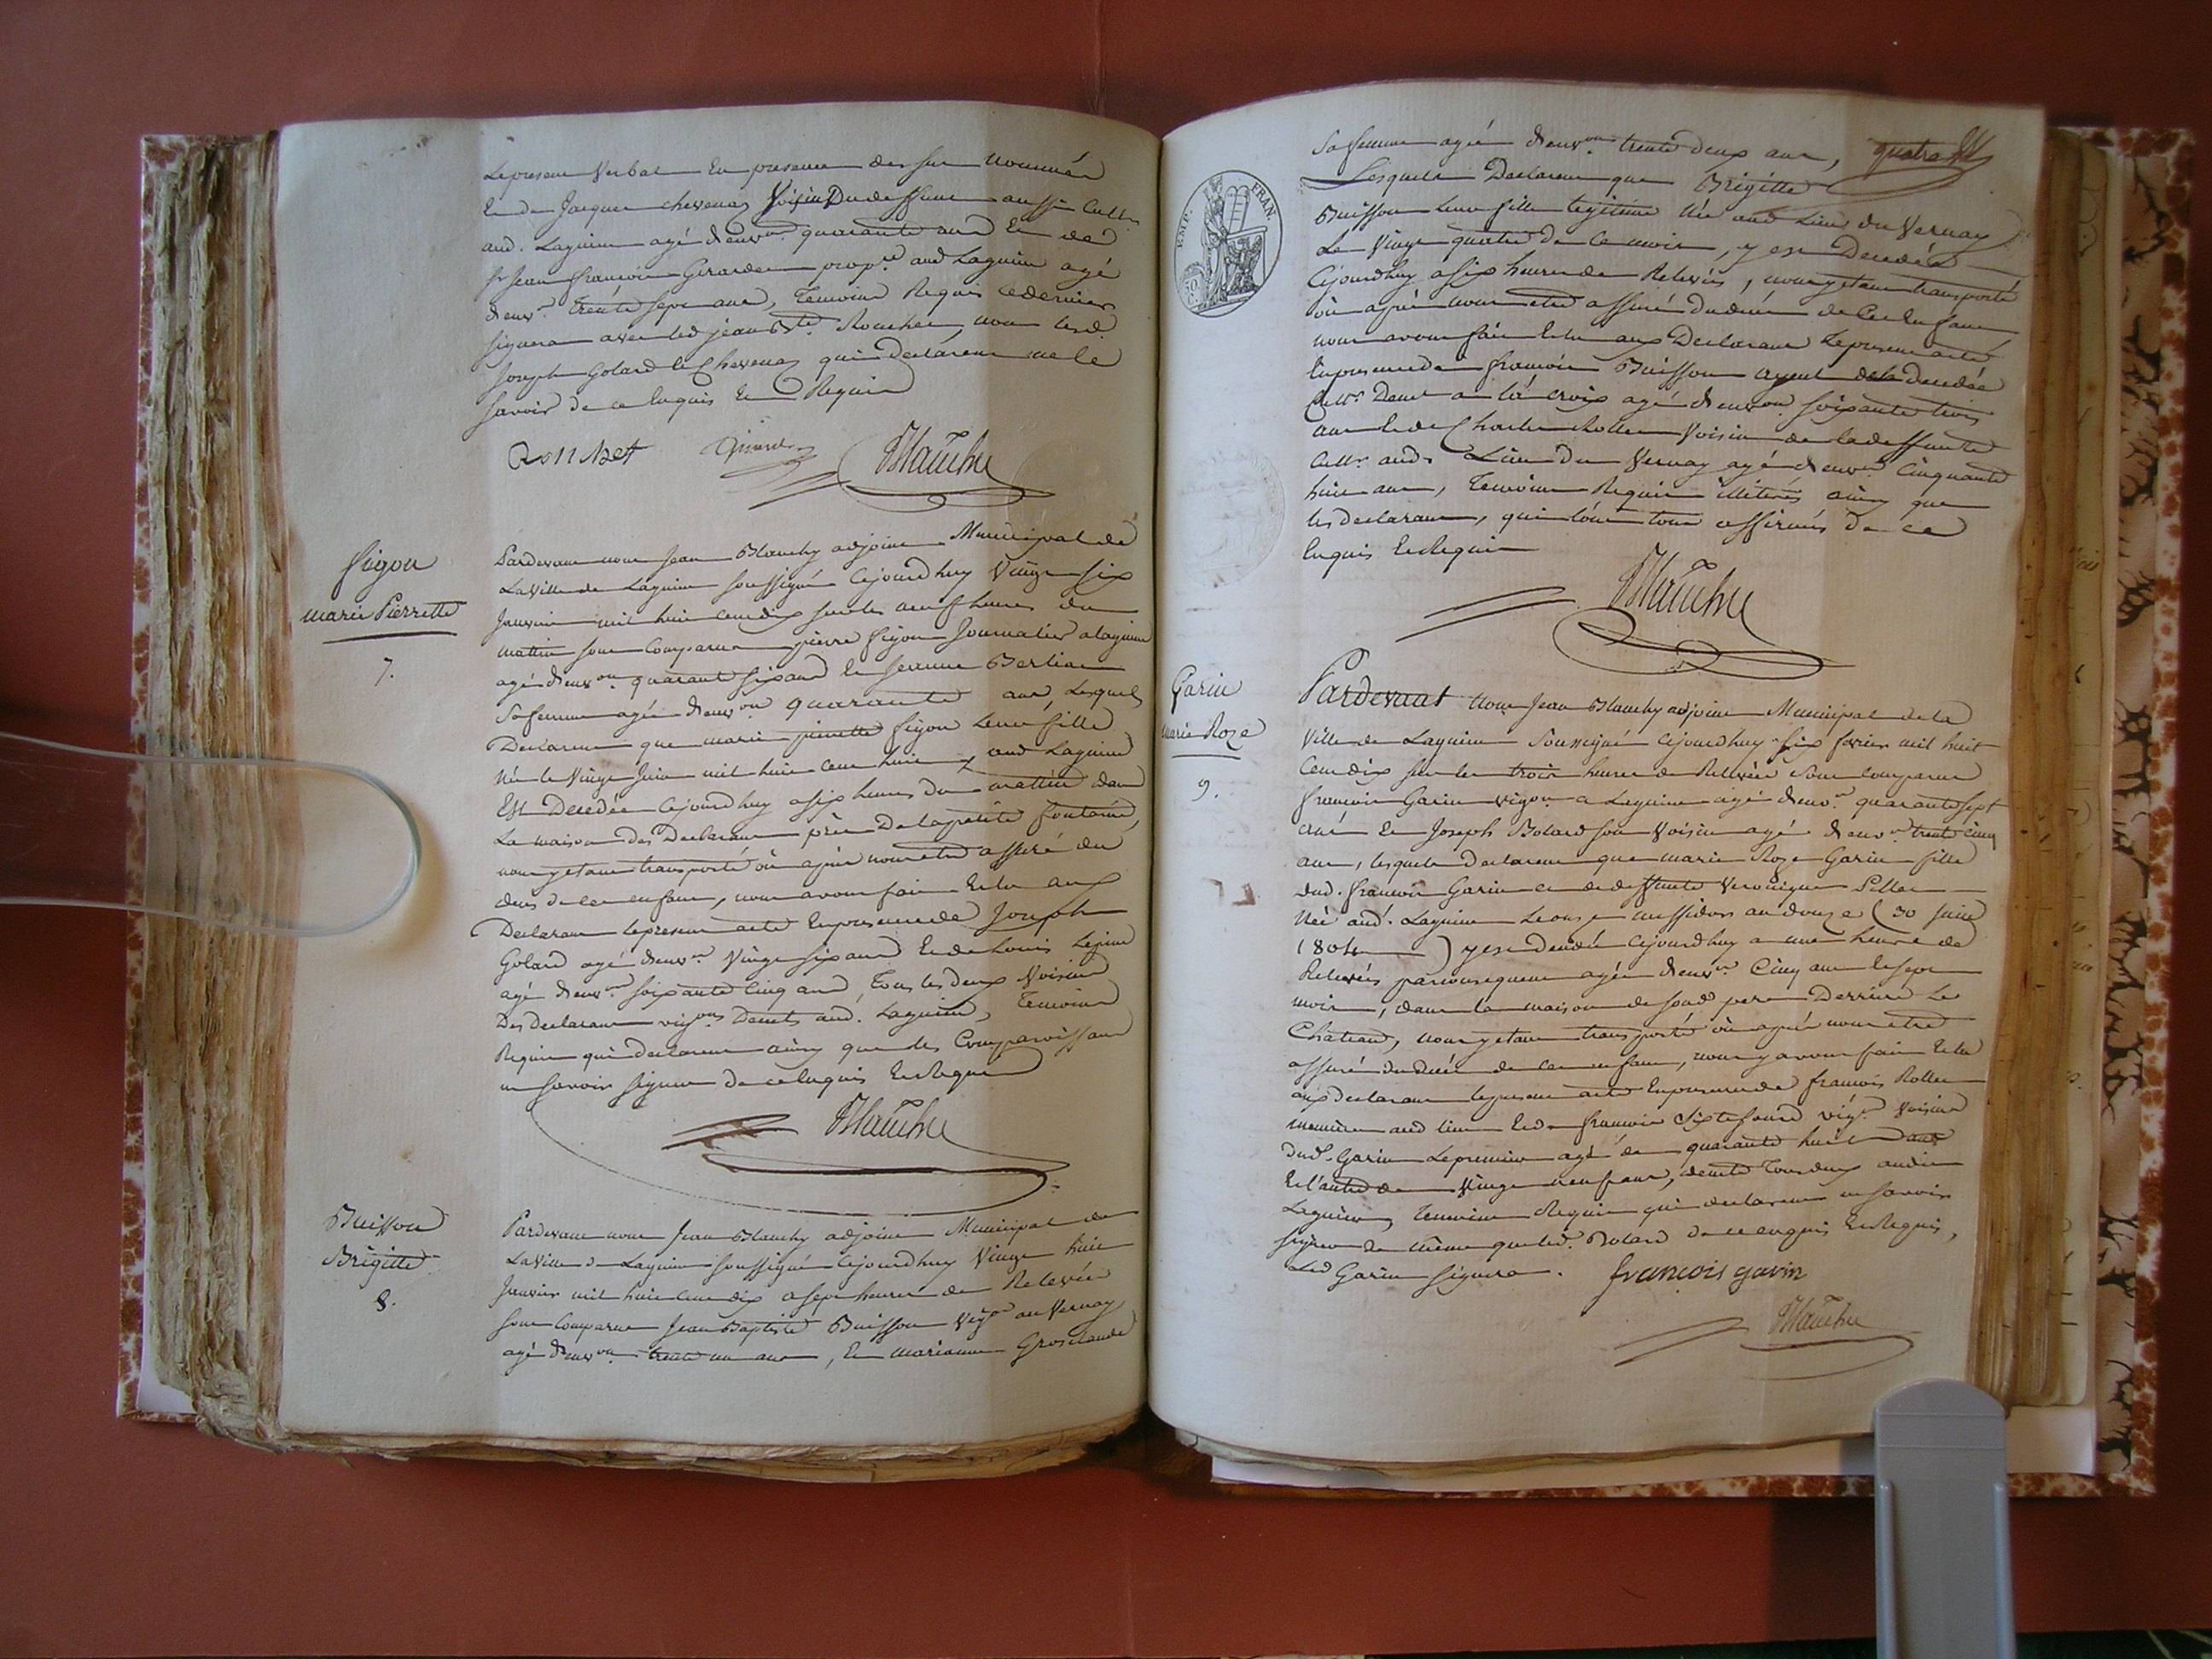 Le present Verbal En presence des sus nommés
Et de Jacques chevenaz Voisin Du deffunt aussi Cultr
aud. Lagnieu agé d'envon quarante ans Et de
Sr Jean françois Girardeau propre aud Lagnieu agé
d'envn trente sept ans, Temoins Requis ce dernier
signera avec led jean Bte Rouchet, non lesd
Joseph Golard et Chevenaz qui Declarent ne le
savoir de ce Enquis Et Requis
Ronchet Blanchy
figon
marie Pierrette
7.
Pardevant nous Jean Blanchy adjoint Municipal de
La Ville de Lagnieu soussigné Cejourdhuy Vingt six
Janvier mil huit cent dix sur les neuf heures du
mattin sont Comparus pierre figon Journalier a Lagnieu
agé d'envon quarant six ans Et Jeanne Berlion
sa femme agée d'envon quarante ans, Lesquels
Declarent que marie pierrette figon Leur fille
Née le Vingt Juin mil huit cent huit aud Lagnieu
Est Decedée Cejourdhuy a six heures du mattin dans
La maison des Declarants près De la petite fontaine,
nous y etant transporté où après nous etre assuré du
decès de cet enfant, nous avons fait Et lu aux
Declarants le present acte En presence de Joseph
Golard agé d'envn Vingt six ans Et de Louis Lejeune
agé d'envon soixante Cinq ans, Tous les deux Voisins
Des declarants vigons Demts aud. Lagnieu, Temoins
Requis qui declarent ainsy que les Comparoissants
ne savoir signer de ce Enquis Et Requis
Blanchy
Buisson
Brigitte
8.
Pardevant nous Jean Blanchy adjoint Municipal de
La Ville de Lagnieu soussigné Cejourdhuy Vingt huit
Janvier mil huit cent dix a sept heures de Relevée
sont Comparus Jean Baptiste Buisson Vign au Vernay
agé d'envon trente un ans, Et marianne Grosclaude
EMP. FRAN.
50 C.
Sa femme agée d'envon trente deux ans,
Lesquels Declarent que Brigitte
Buisson Leur fille legitime Née aud Lieu du Vernay
Le Vingt quatre de Ce mois, y est Decedée
Cejourdhuy a six heures de Relevée, nous y etant transporté
où après nous etre assuré du decés de Cet Enfant
nous avons fait Et lu aux Declarants Le present acte
En presence de françois Buisson ayeul de la Decedée
Cultr Demt a la Croix agé d'envon soixante trois
ans Et de Charles Rollet Voisin de la deffunte
Cultr aud. Lieu du Vernay agé d'envon Cinquante
huit ans, Temoins Requis illiterés ainsy que
les declarants, qui l'ont tous affirmés de ce
Enquis Et Requis
Blanchy
Garin
marie Roze
9.
Pardevant Nous Jean Blanchy adjoint Municipal de la
Ville de Lagnieu Soussigné Cejourdhuy six fevrier mil huit
Cent dix sur les trois heures de Relevée Sont Comparus
françois Garin vigon a Lagnieu agé d'envon quarante sept
ans Et Joseph Bolard son Voisin agé d'envon trente cinq
ans, lesquels declarent que marie Roze Garin fille
dud. françois Garin et de deffunte Veronique Pillet
Née aud. Lagnieu Le onze messidor an douze (30 juin
1804) y est decedée Cejourdhuy a une heure de
Relevée par consequent agée d'envon Cinq ans Et sept
mois, dans la maison de sond pere Derriere Le
Chateau, nous y etant transporté où après nous etre
assuré du decés de cet enfant, nous y avons fait Et lu
aux declarants le present acte En presence de françois Rollet
aud lieu Et de françois vign Voisins
dud. Garin Le premier agé de quarante huit ans
Et l'autre de Vingt neuf ans, demts Tous deux audit
Lagnieu, Temoins Requis qui declarent ne savoir
signer de même que led. Bolard de ce enquis Et Requis,
Led Garin signera. françois garin
Blanchy